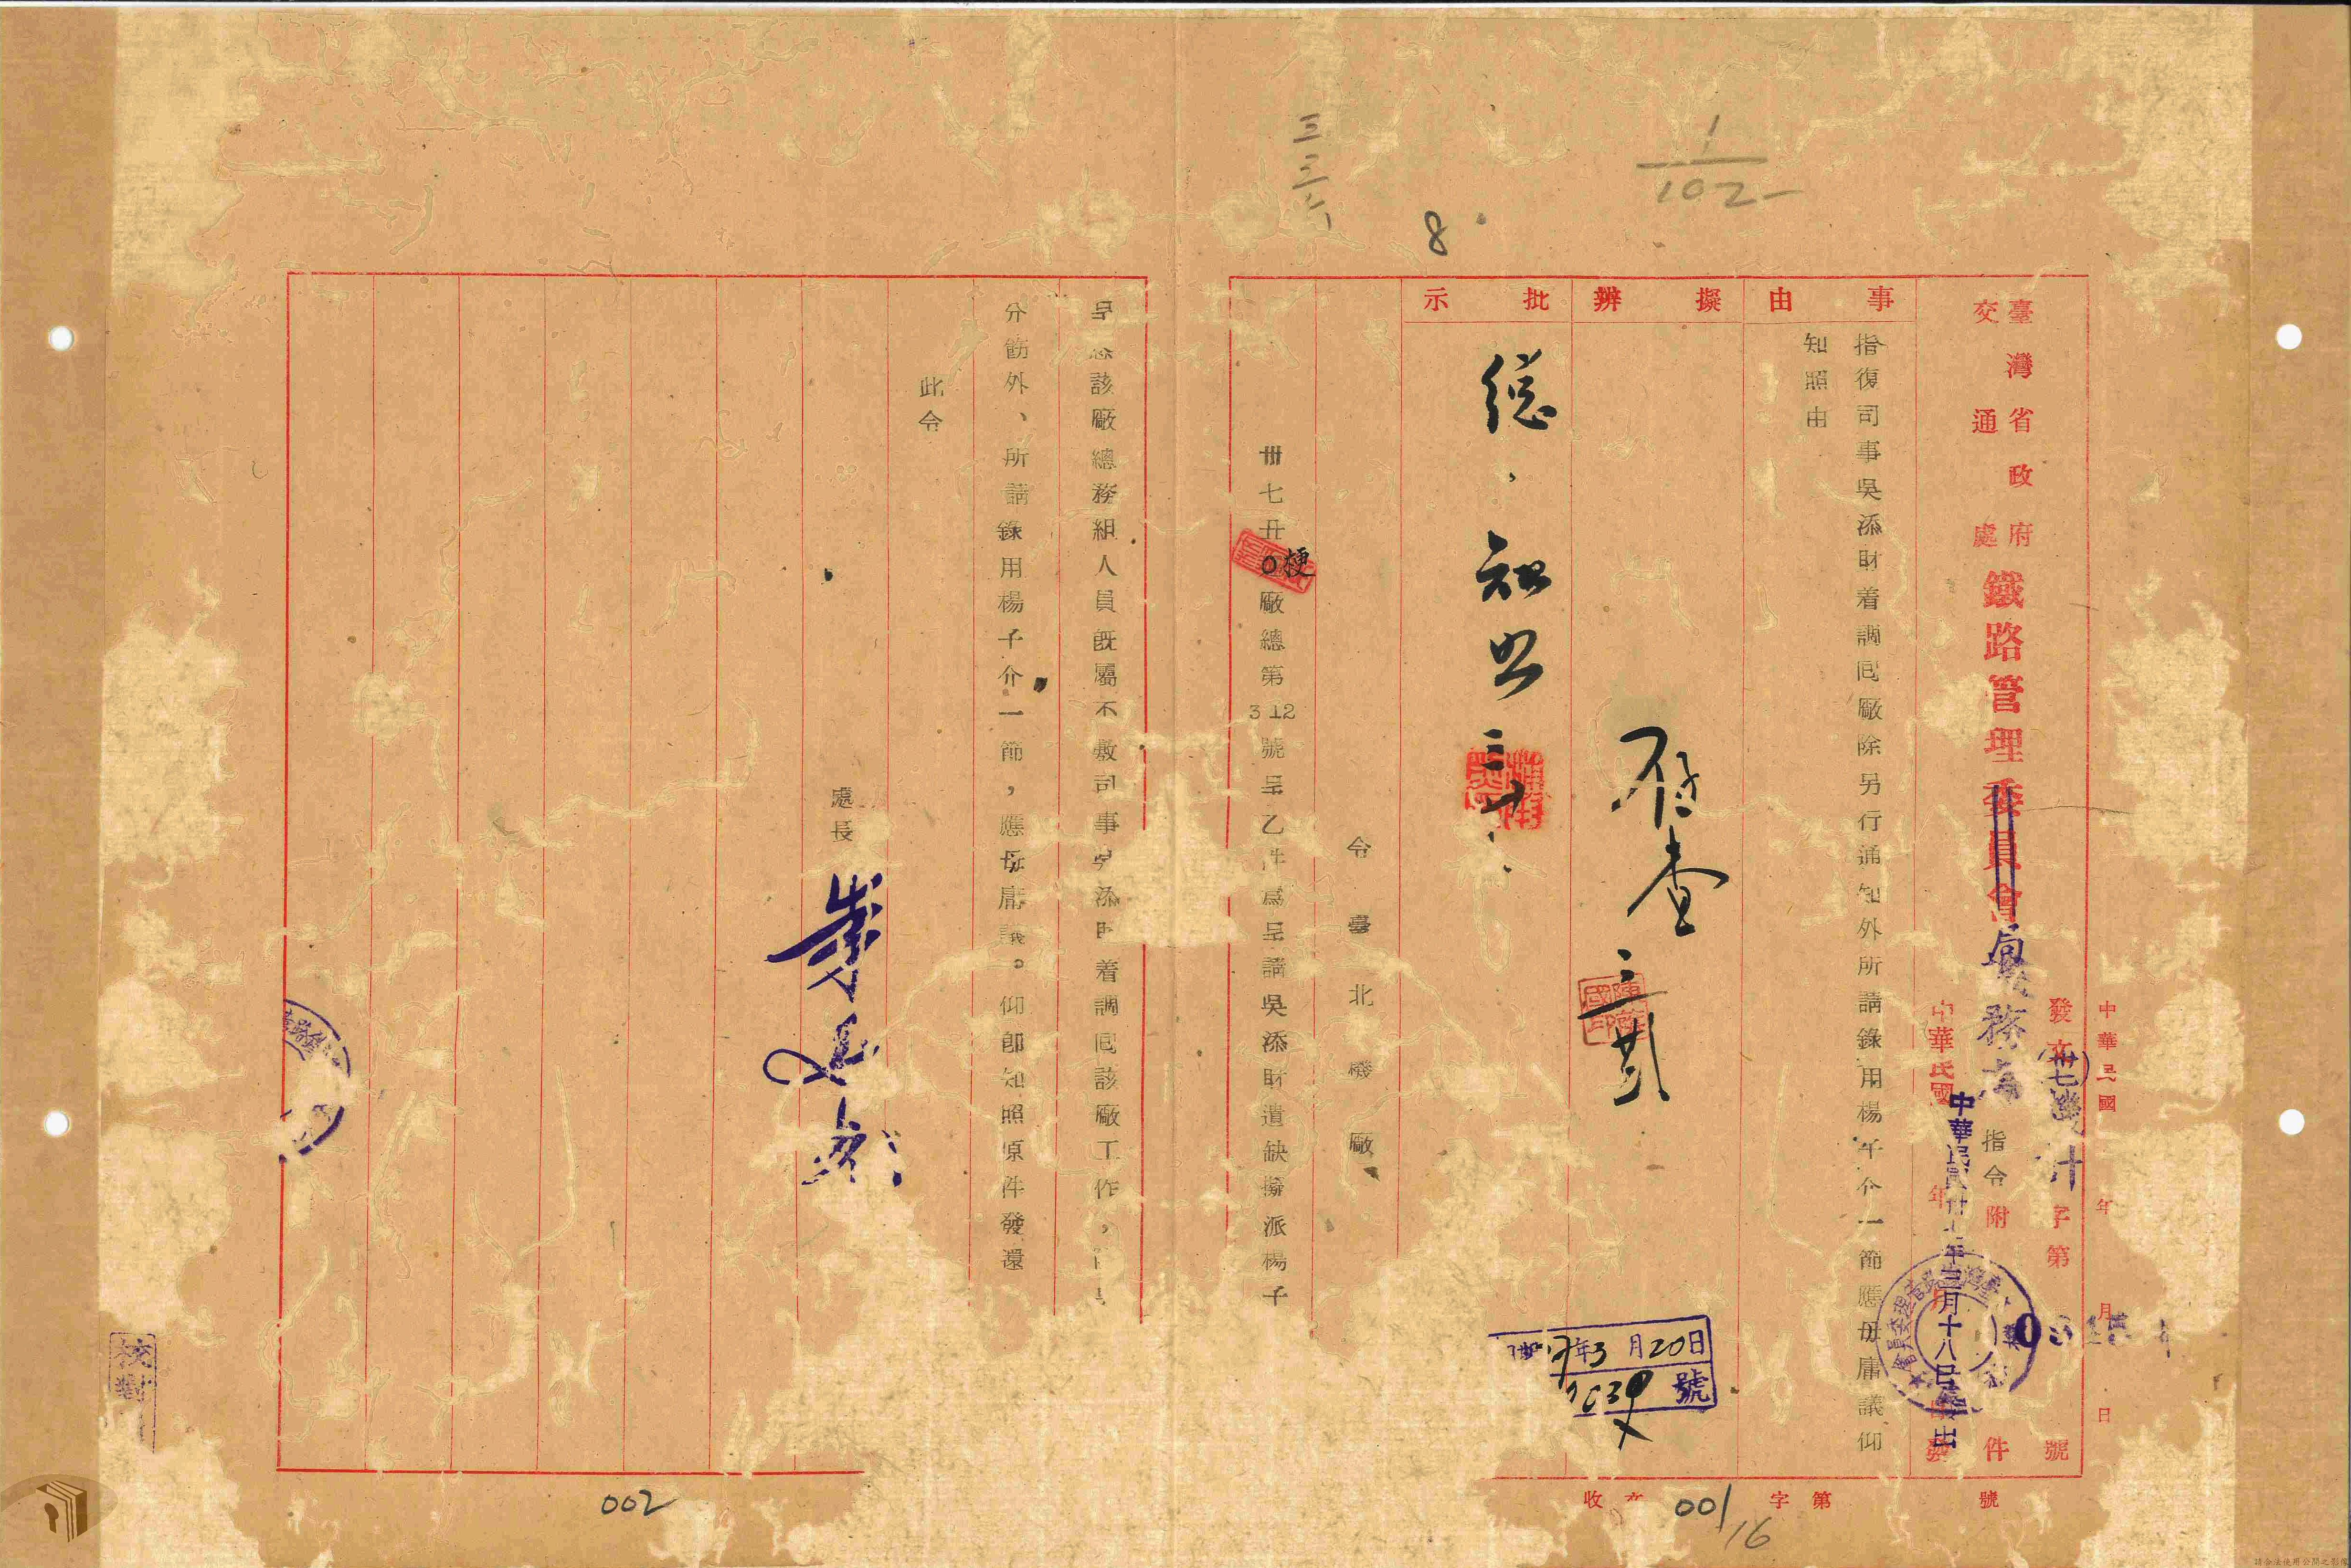 三三六
1
102
8
臺灣省政府
交通處
鐵路管理委員會
務
指令
附件
發文
(卅七)
字第
號
中華民國 年 月 日
中華民國
年
中華民國卅七年三月十八日發出
事由
指復司事吳添財着調囘廠除另行通知外所請錄用楊子介一節應毋庸議仰
知照由
擬辦
存查
批示
總、知照
令臺北機廠
卅七丑
梗
廠總第312號呈乙件為呈請吳添財遺缺擬派楊子
呈悉該廠總務組人員既屬不敷司事吳添財着調囘該廠工作,
分飭外、所請錄用楊子介一節,應毋庸議。仰即知照原件發還
此令
處長
年3月20日
號
校對
收文
字第
號
001
16
002